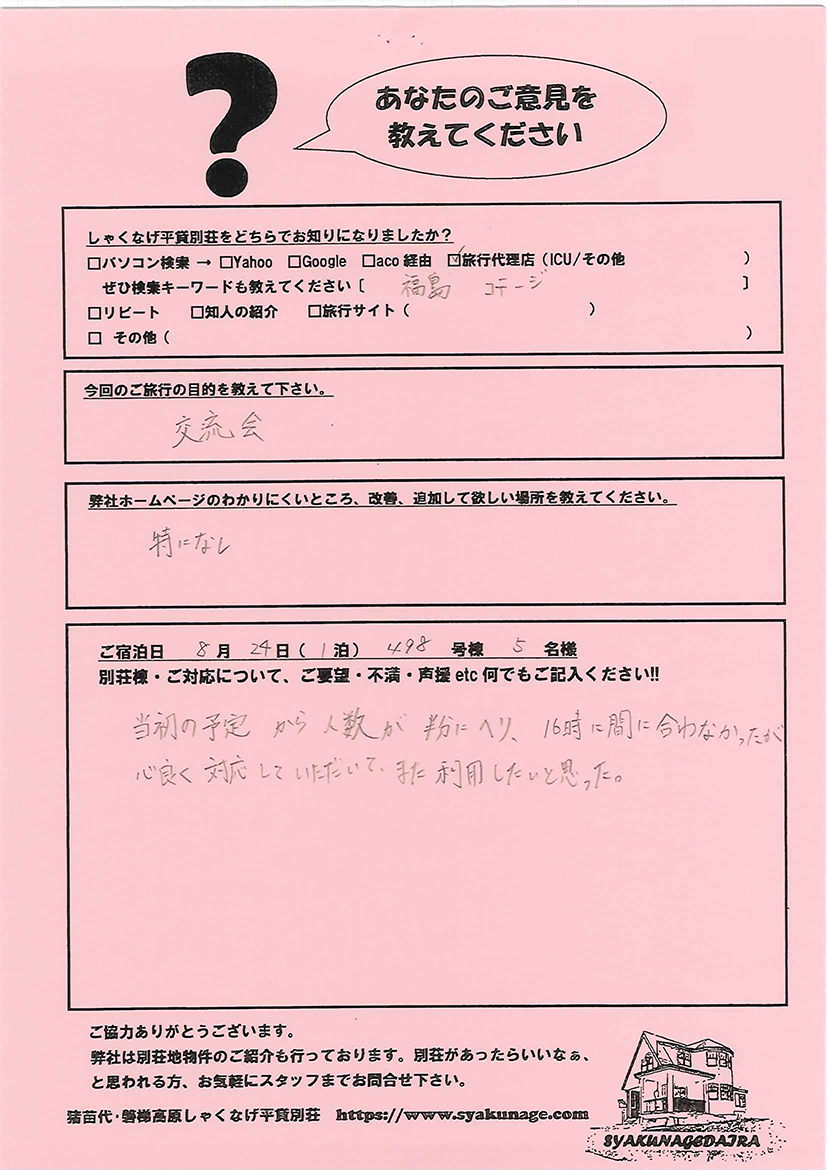 ?
あなたのご意見を
教えてください
しゃくなげ平貸別荘をどちらでお知りになりましたか?
□パソコン検索 → □Yahoo □Google □aco 経由 ☑旅行代理店(ICU/その他 )
ぜひ検索キーワードも教えてください [ 福島 コテージ ]
□リピート □知人の紹介 □旅行サイト( )
□ その他( )
今回のご旅行の目的を教えて下さい。
交流会
弊社ホームページのわかりにくいところ、改善、追加して欲しい場所を教えてください。
特になし
ご宿泊日 8月 24日(1泊) 498 号棟 5 名様
別荘棟・ご対応について、ご要望・不満・声援 etc 何でもご記入ください!!
当初の予定から人数が半分にヘリ、16時に間に合わなかったが
心良く対応していただいて、また利用したいと思った。
ご協力ありがとうございます。
弊社は別荘地物件のご紹介も行っております。別荘があったらいいなぁ、
と思われる方、お気軽にスタッフまでお問合せ下さい。
猪苗代・磐梯高原しゃくなげ平貸別荘 https://www.syakunage.com
SYAKUNAGEDAIRA